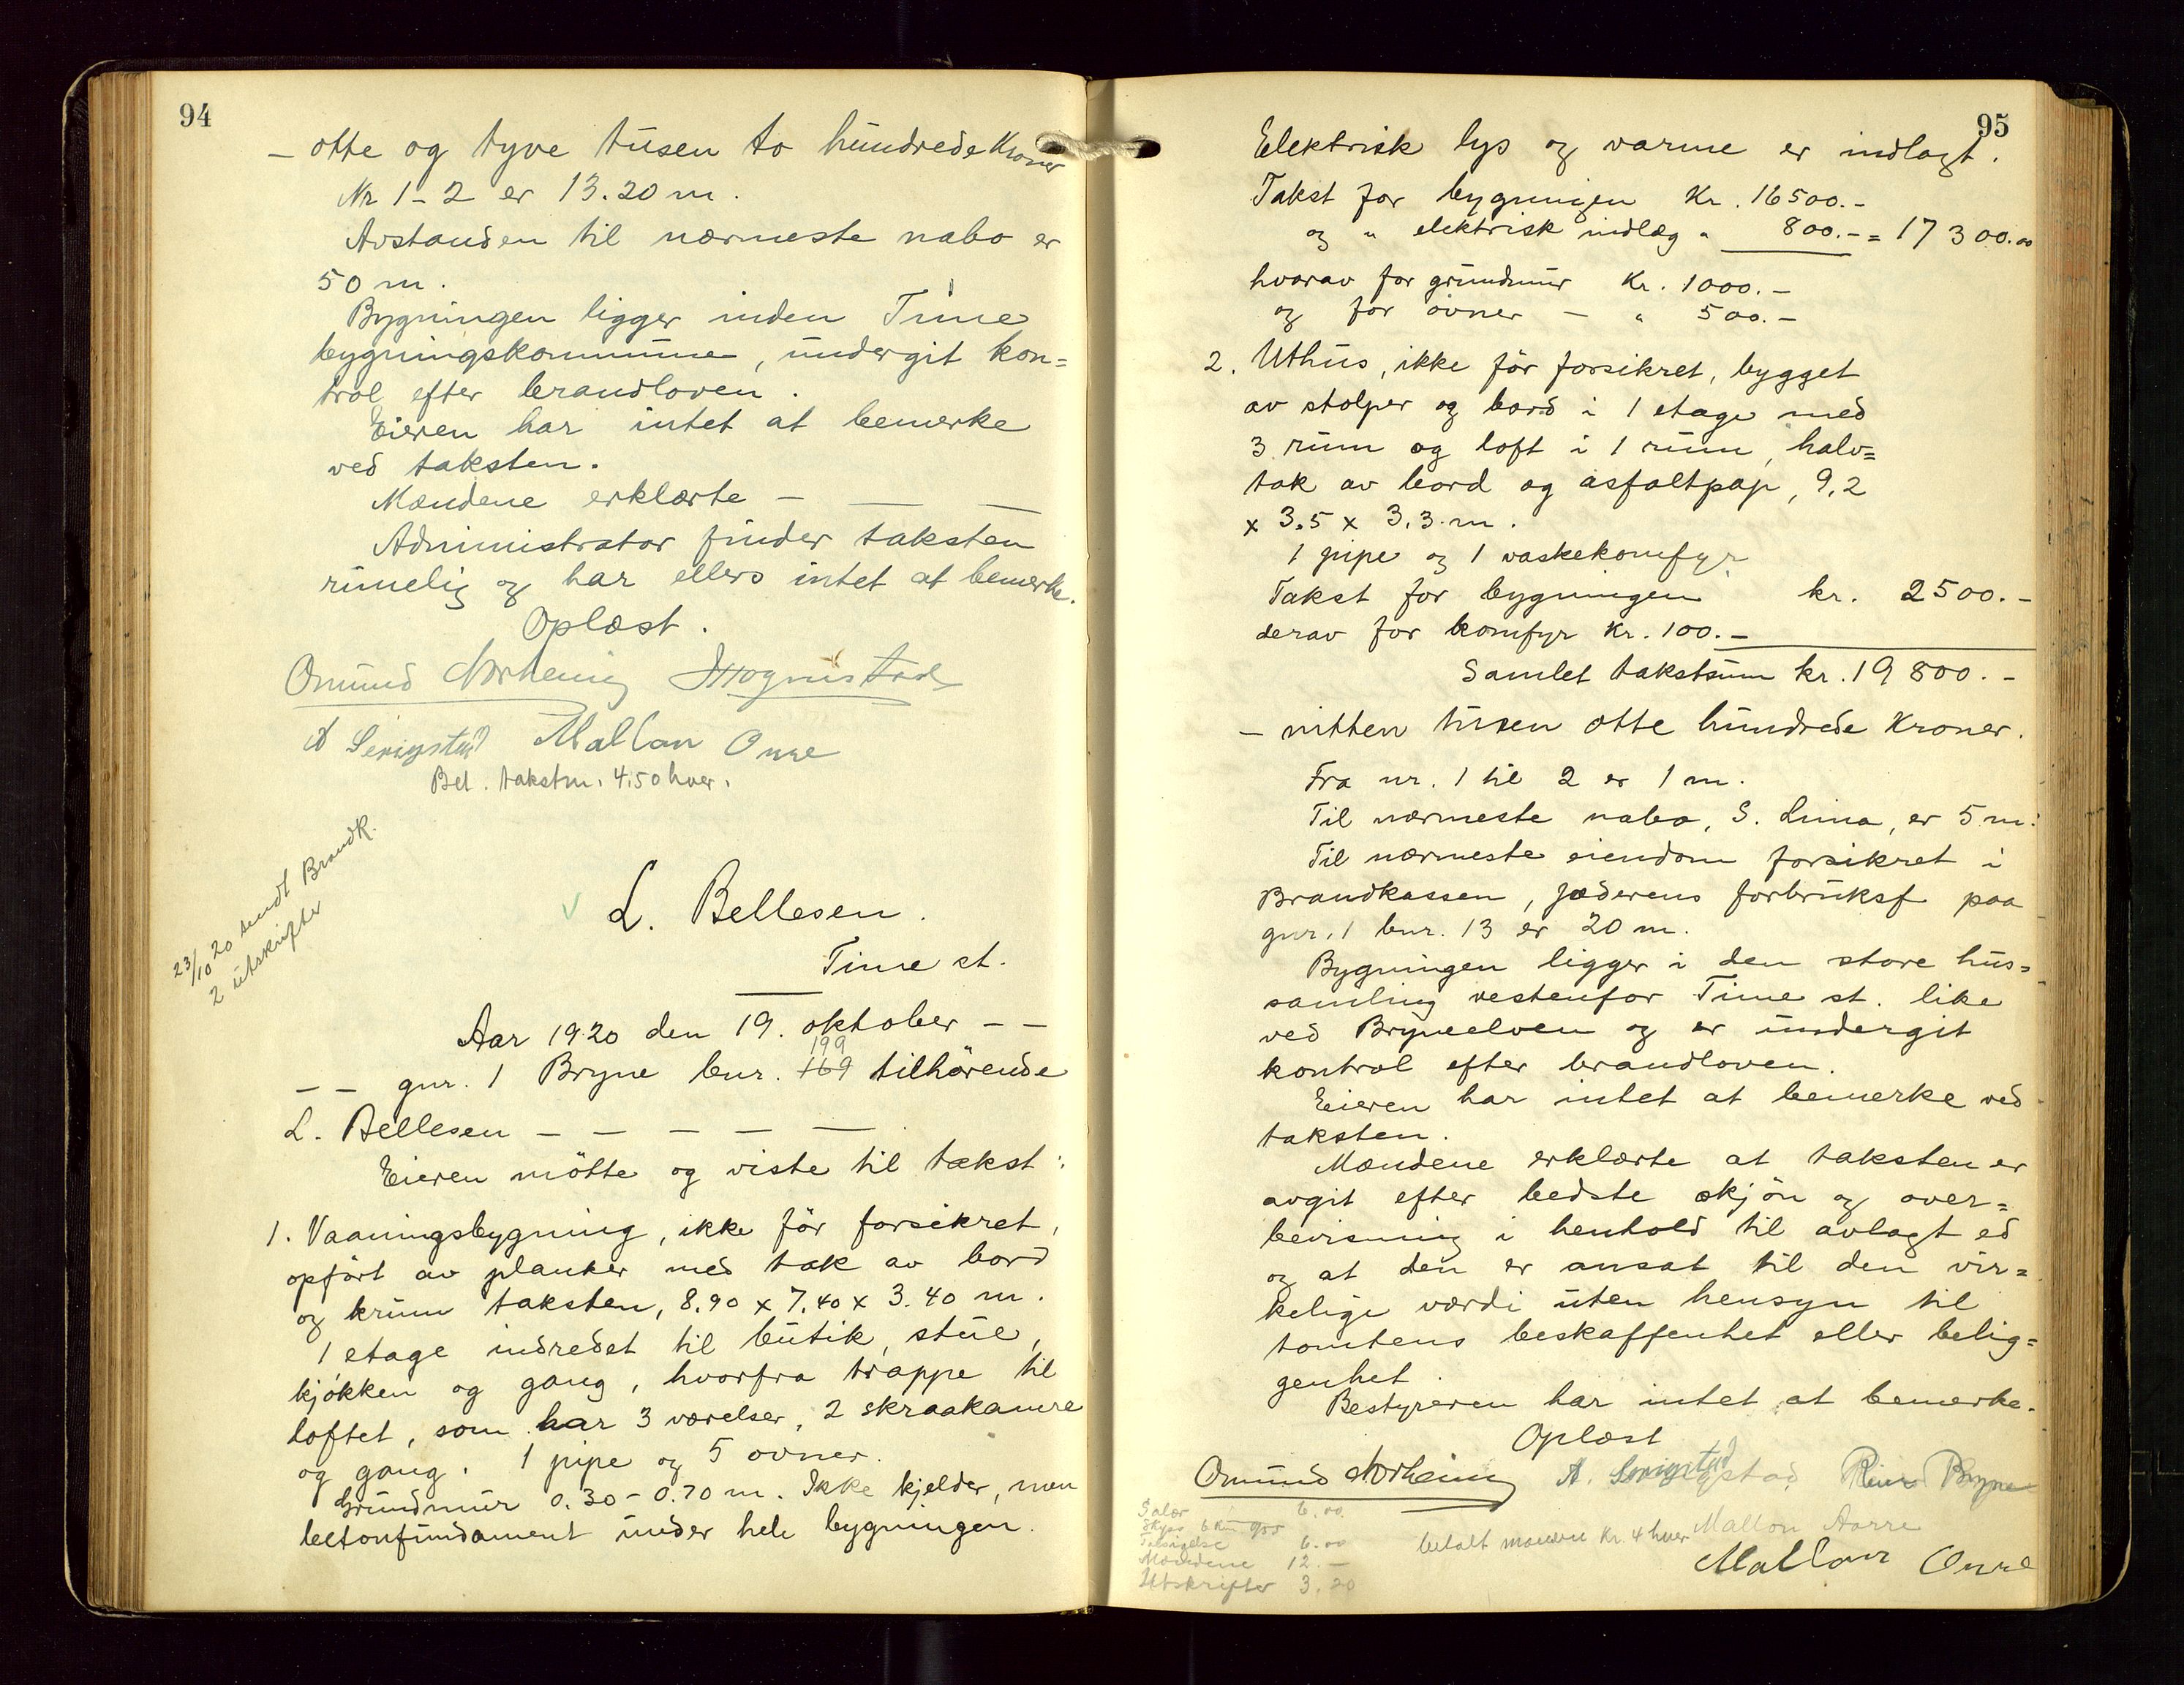 94
– otte og tyve tusen to hundrede Kroner
Nr 1 - 2 er 13.20 m.
Avstanden til nærmeste nabo er
50 m.
Bygningen ligger inden Time
bygningskommune, undergit kon=
trol efter brandloven.
Eieren har intet at bemerke
ved taksten.
Mændene erklærte – — —
Administrator finder taksten
rimelig og har ellers intet at bemerke.
Oplæst.
Omund Norheim
A Serigstad Mallon Orre
Bet. takstm. 4.50 hver.
23/10 20 sendt Brandk.
2 utskrifter
L. Bellesen.
Time st.
Aar 1920 den 19. oktober – –
199
– – gnr. 1 Bryne bnr. 169 tilhörende
L. Bellesen – – – – —
Eieren mötte og viste til takst:
1. Vaaningsbygning, ikke för forsikret,
opfört av planker med tak av bord
og krum taksten, 8.90 x 7.40 x 3.40 m.
1 etage indredet til butik, stue,
kjökken og gang, hvorfra trappe til
loftet, som har 3 værelser, 2 skraakamre
og gang. 1 pipe og 5 ovner.
Grundmur 0.30 – 0.70 m. Ikke kjelder, men
betonfundament under hele bygningen.
95
Elektrisk lys og varme er indlagt.
Takst for bygningen Kr. 16500.-
og " elektrisk indlæg " 800.- = 17 300.00
hvorav for grundmur Kr. 1000.-
og for ovner – " 500.-
2. Uthus, ikke för forsikret, bygget
av stolper og bord i 1 etage med
3 rum og loft i 1 rum, halv=
tak av bord og asfaltpap, 9,2
x 3.5 x 3.3 m.
1 pipe og 1 vaskekomfyr
Takst for bygningen kr. 2500.-
derav for komfyr Kr. 100.-
Samlet takstsum kr. 19 800.-
– nitten tusen otte hundrede Kroner.
Fra nr. 1 til 2 er 1 m.
Til nærmeste nabo, S. Lima, er 5 m.
Til nærmeste eiendom forsikret i
Brandkassen, Jæderens forbruksf paa
gnr. 1 bnr. 13 er 20 m.
Bygningen ligger i den store hus=
samling vestenfor Time st. like
ved Bryneelven og er undergit
kontrol efter brandloven.
Eieren har intet at bemerke ved
taksten.
Mændene erklærte at taksten er
avgit efter bedste skjön og over=
bevisning i henhold til avlagt ed
og at den er ansat til den vir=
kelige værdi uten hensyn til
tomtens beskaffenhet eller belig=
genhet.
Bestyreren har intet at bemerke.
Oplæst
Omund Norheim A. Serigstad Reier Bryne
Salær 6.00
Skyss 6 km 900
Tilsigelse 6.00
Mændene 12.–
Utskrifter 3.20
betalt mændene Kr. 4 hver
Mallon Aarre
Mallon Orre